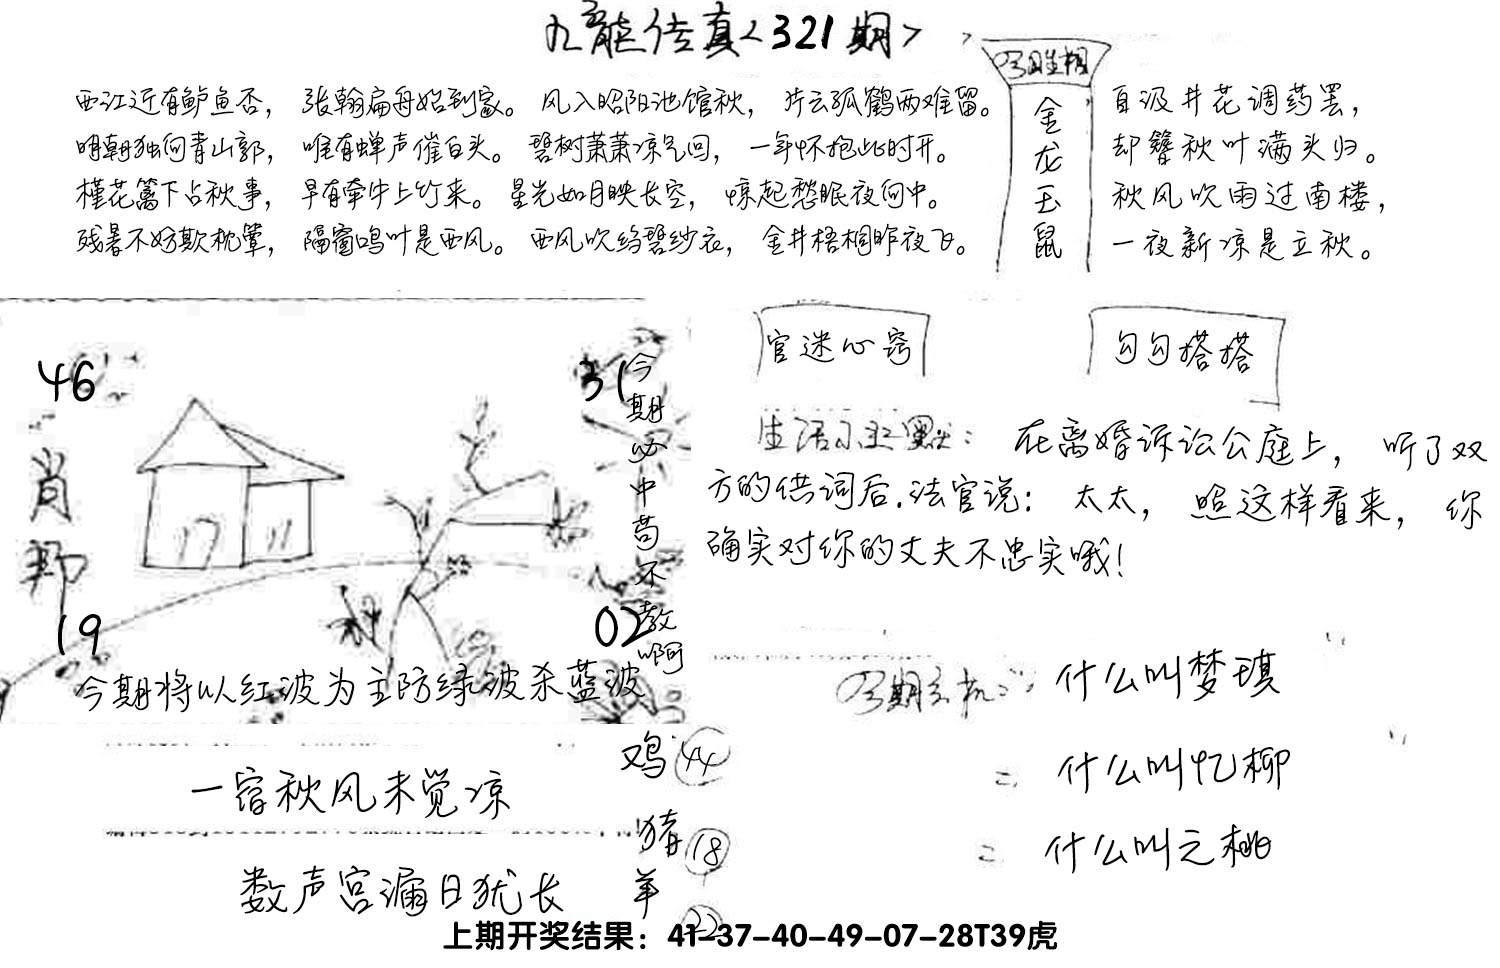 九龍传真<321期>
西江近有鲈鱼否，张翰扁舟始到家。风入昭阳池馆秋，片云孤鹤两难留。
明朝独向青山郭，唯有蝉声催白头。碧树萧萧凉气回，一年怀抱此时开。
槿花篱下占秋事，早有牵牛上竹来。星光如月映长空，惊起愁眠夜向中。
残暑不妨欺枕簟，隔窗鸣叶是西风。西风吹绉碧纱衣，金井梧桐昨夜飞。
今日生相
金龙玉鼠
自汲井花调药罢，
却簪秋叶满头归。
秋风吹雨过南楼，
一夜新凉是立秋。
46
31
肖
19
02
今期必中苟不教啊
今期将以红波为主防绿波杀蓝波
官迷心窍
勾勾搭搭
生活小幽默：在离婚诉讼公庭上，听了双
方的供词后.法官说：太太，照这样看来，你
确实对你的丈夫不忠实哦！
什么叫梦琪
什么叫忆柳
什么叫之桃
一宿秋风未觉凉
数声宫漏日犹长
鸡 44
猪 18
羊 22
上期开奖结果：41-37-40-49-07-28T39虎